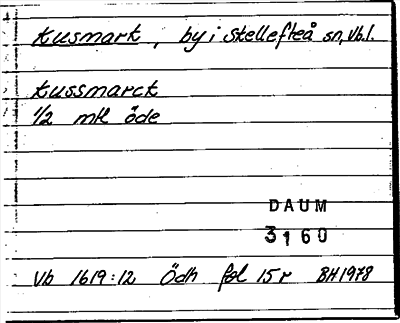 Kusmark, by i Skellefteå sn, Vb.l.
Kussmarck
1/2 mtl öde
DAUM
3160
Vb 1619:12 Ödh fol 15r BH1978